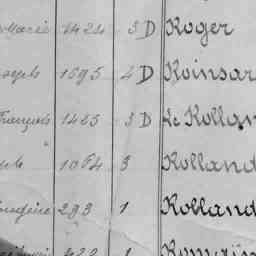 Marie 1424 3 D Roger
oseph 1695 4 D Roinsar
François 1425 3 D Le Rollan
" 1064 3 Rolland
293 1 Rolland
422 1 Romain